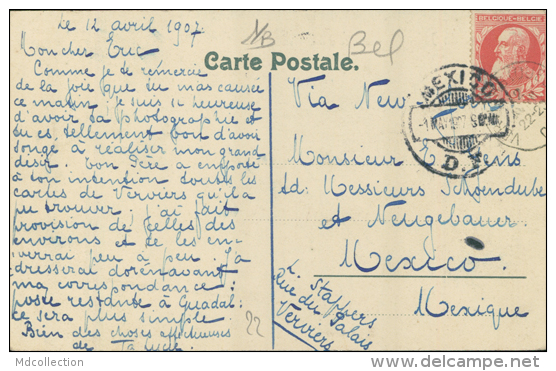 Le 12 avril 1907
Mon cher Eric
Comme je te remercie
de la joie que tu m'as causée
ce matin, je suis si heureuse
d'avoir ta photographie et
tu es tellement bon d'avoir
songé à réaliser mon grand
désir. ton Père a emporté
à ton intention toutes les
cartes de Verviers qu'il a
pu trouver. J'ai fait
provision de celles des
environs et te les en-
verrai peu à peu. J'a
dresserai dorénavant
ma correspondance
poste restante à Guadal:
ce sera plus simple
Bien des choses affectueuses
de Ta Lucie
1/B
Bel
Carte Postale.
BELGIQUE-BELGIË
MEXICO
D.F.
Via New
Monsieur
ad: Messieurs Schondube
et Neugebauer
Mexico
Mexique
L. Stappers
Rue du Palais
Verviers
22
Mdcollection
delcampe.net